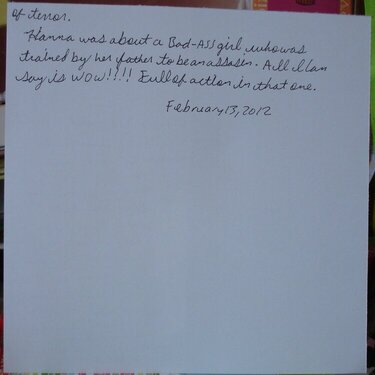 of terror.
Hanna was about a Bad-Ass girl who was
trained by her father to be an assasin. All I can
say is wow!!!! Full of action in that one.
February 13, 2012